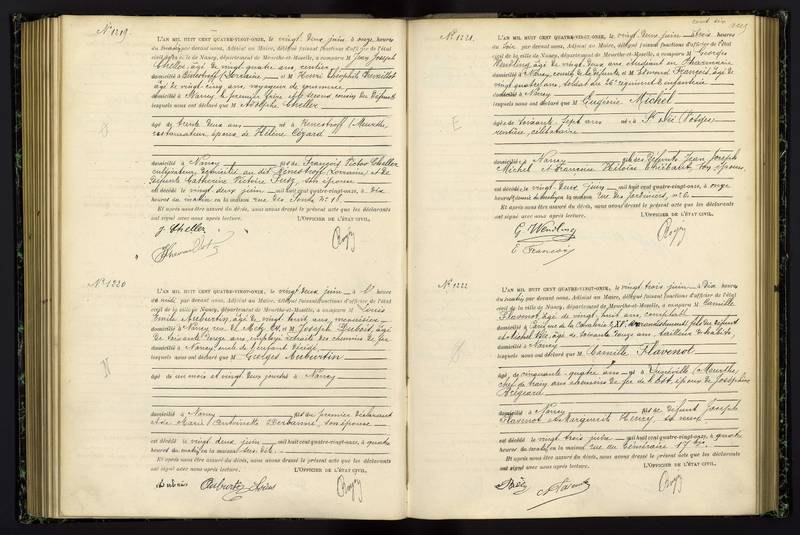 N° 1219.
L'AN MIL HUIT CENT QUATRE-VINGT-ONZE, le vingt deux juin à onze heures
du matin par devant nous, Adjoint au Maire, délégué faisant fonctions d'officier de l'état
civil de la ville de Nancy, département de Meurthe-et-Moselle, a comparu M Joseph
Cheller, âgé de vingt quatre ans,
domicilié à (Lorraine), et M Henri Théophile
âgé de vingt cinq ans, voyageur de commerce,
domicilié à Nancy, le premier frère et le second cousin du défunt
lesquels nous ont déclaré que M Adolphe Cheller
âgé de trente deux ans né à (Meurthe)
restaurateur, époux de Hélène Cézard
domicilié à Nancy fils de François Victor Cheller
cultivateur, domicilié au dit (Lorraine) et de
défunte Catherine Victoire son épouse
est décédé le vingt deux juin mil huit cent quatre-vingt-onze, à dix
heures du matin en la maison rue des Ponts N° 18
Et après nous être assuré du décès, nous avons dressé le présent acte que les déclarants
ont signé avec nous après lecture. L'OFFICIER DE L'ÉTAT CIVIL,
J. Cheller
N° 1220
L'AN MIL HUIT CENT QUATRE-VINGT-ONZE, le vingt deux juin à heures
par devant nous, Adjoint au Maire, délégué faisant fonctions d'officier de l'état
civil de la ville de Nancy, département de Meurthe-et-Moselle, a comparu M Louis
Émile Auburtin, âgé de vingt huit ans, menuisier
domicilié à Nancy rue de Metz et M Joseph Dubois, âgé
de soixante onze ans, employé retraité des chemins de fer
domicilié à Nancy, de l'enfant décédé
lesquels nous ont déclaré que M Georges Auburtin
âgé de un mois et vingt deux jours né à Nancy
domicilié à Nancy fils du premier déclarant
et de Marie Antoinette son épouse
est décédé le vingt deux juin mil huit cent quatre-vingt-onze, à quatre
heures du matin en la maison
Et après nous être assuré du décès, nous avons dressé le présent acte que les déclarants
ont signé avec nous après lecture. L'OFFICIER DE L'ÉTAT CIVIL,
Dubois Auburtin
N° 1221.
L'AN MIL HUIT CENT QUATRE-VINGT-ONZE, le vingt deux juin à trois heures
du soir par devant nous, Adjoint au Maire, délégué faisant fonctions d'officier de l'état
civil de la ville de Nancy, département de Meurthe-et-Moselle, a comparu M Georges
Wendling, âgé de vingt deux ans étudiant en Pharmacie
domicilié à Nancy, cousin de la défunte, et M Edmond François, âgé de
vingt quatre ans, soldat au 26e régiment d'infanterie
domicilié à Nancy
lesquels nous ont déclaré que M Eugénie Michel
âgée de soixante-sept ans née à St Dié (Vosges)
rentière, célibataire
domiciliée à Nancy fille des défunts Jean Joseph
Michel et Françoise Héloïse Thiébaut, son épouse
est décédée le vingt deux juin mil huit cent quatre-vingt-onze, à onze
heures du matin en la maison rue des Jardiniers, n°
Et après nous être assuré du décès, nous avons dressé le présent acte que les déclarants
ont signé avec nous après lecture. L'OFFICIER DE L'ÉTAT CIVIL,
G. Wendling
E. François
E
N° 1222
L'AN MIL HUIT CENT QUATRE-VINGT-ONZE, le vingt trois juin à dix heures
du matin par devant nous, Adjoint au Maire, délégué faisant fonctions d'officier de l'état
civil de la ville de Nancy, département de Meurthe-et-Moselle, a comparu M Camille
Flavenot, âgé de vingt huit ans, comptable
domicilié à XVe arrondissement, fils du défunt
et Michel âgé de soixante onze ans, tailleur d'habits,
domicilié à Nancy
lesquels nous ont déclaré que M Camille Flavenot
âgé de cinquante-quatre ans né à Lunéville (Meurthe)
chef de train aux chemins de fer de l'Est, époux de Joséphine
domicilié à Nancy fils de défunt Joseph
Flavenot et Marguerite Henry, sa veuve
est décédé le vingt trois juin mil huit cent quatre-vingt-onze, à quatre
heures du matin en la maison rue du Téméraire 17 bis
Et après nous être assuré du décès, nous avons dressé le présent acte que les déclarants
ont signé avec nous après lecture. L'OFFICIER DE L'ÉTAT CIVIL,